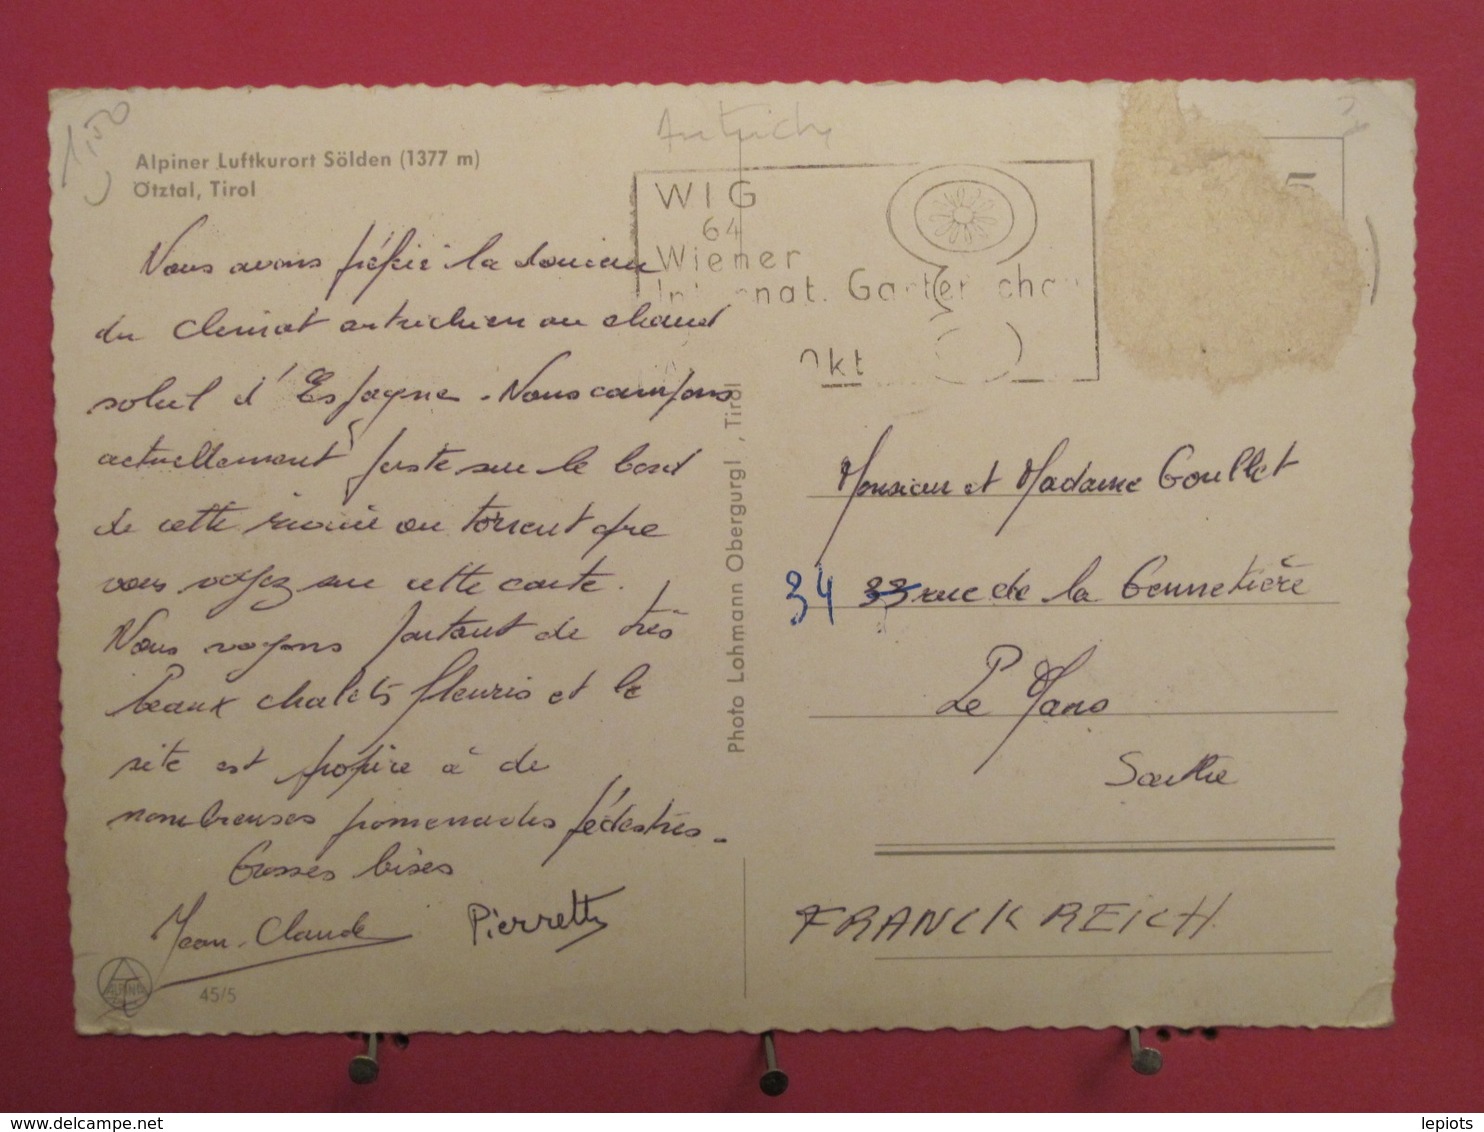 1,50
Autriche
Alpiner Luftkurort Sölden (1377 m)
Ötztal, Tirol
WIG
64
Wiener
Internat. Garten cha
Okt
5
Nous avons préféré la douceur
du climat autrichien au chaud
soleil d'Espagne. Nous campons
actuellement juste sur le bord
de cette rivière ou torrent que
vous voyez sur cette carte.
Nous voyons partout de très
beaux chalets fleuris et le
site est propice à de
nombreuses promenades pédestres.
Grosses bises
Jean-Claude Pierrette
ALPINE
45/5
Photo Lohmann Obergurgl, Tirol
Monsieur et Madame Goullet
34 33 rue de la Gennetière
Le Mans
Sarthe
FRANCKREICH
delcampe.net
lepiots